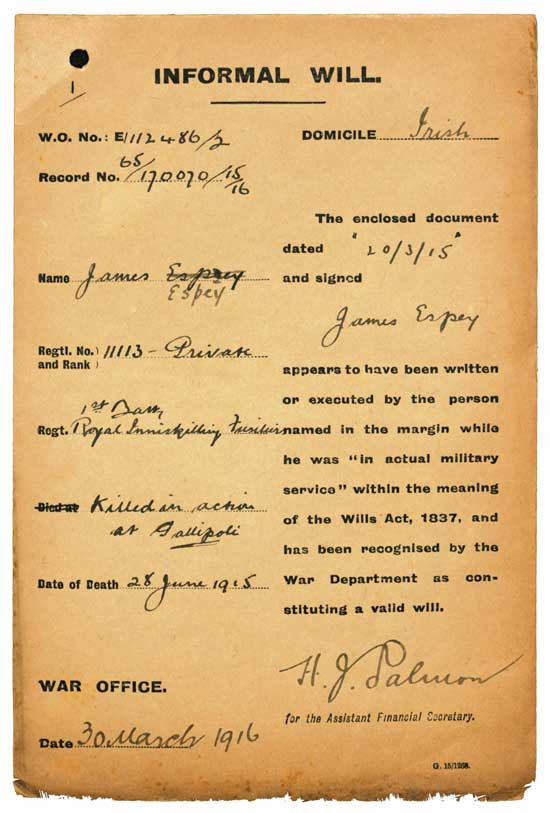 1
INFORMAL WILL.
W.O. No.: E/112486/2
Record No. 65/170070/15/16
Name James Esprey
Espey
Regtl. No. 11113 - Private
and Rank
1st Batt,
Regt. Royal Inniskilling Fusiliers
Died at Killed in action
at Gallipoli
Date of Death 28 June 1915
WAR OFFICE.
Date 30 March 1916
DOMICILE Irish
The enclosed document
dated "20/3/15"
and signed
James Espey
appears to have been written
or executed by the person
named in the margin while
he was "in actual military
service" within the meaning
of the Wills Act, 1837, and
has been recognised by the
War Department as con-
stituting a valid will.
H. J. Palmon
for the Assistant Financial Secretary.
G. 15/1268.